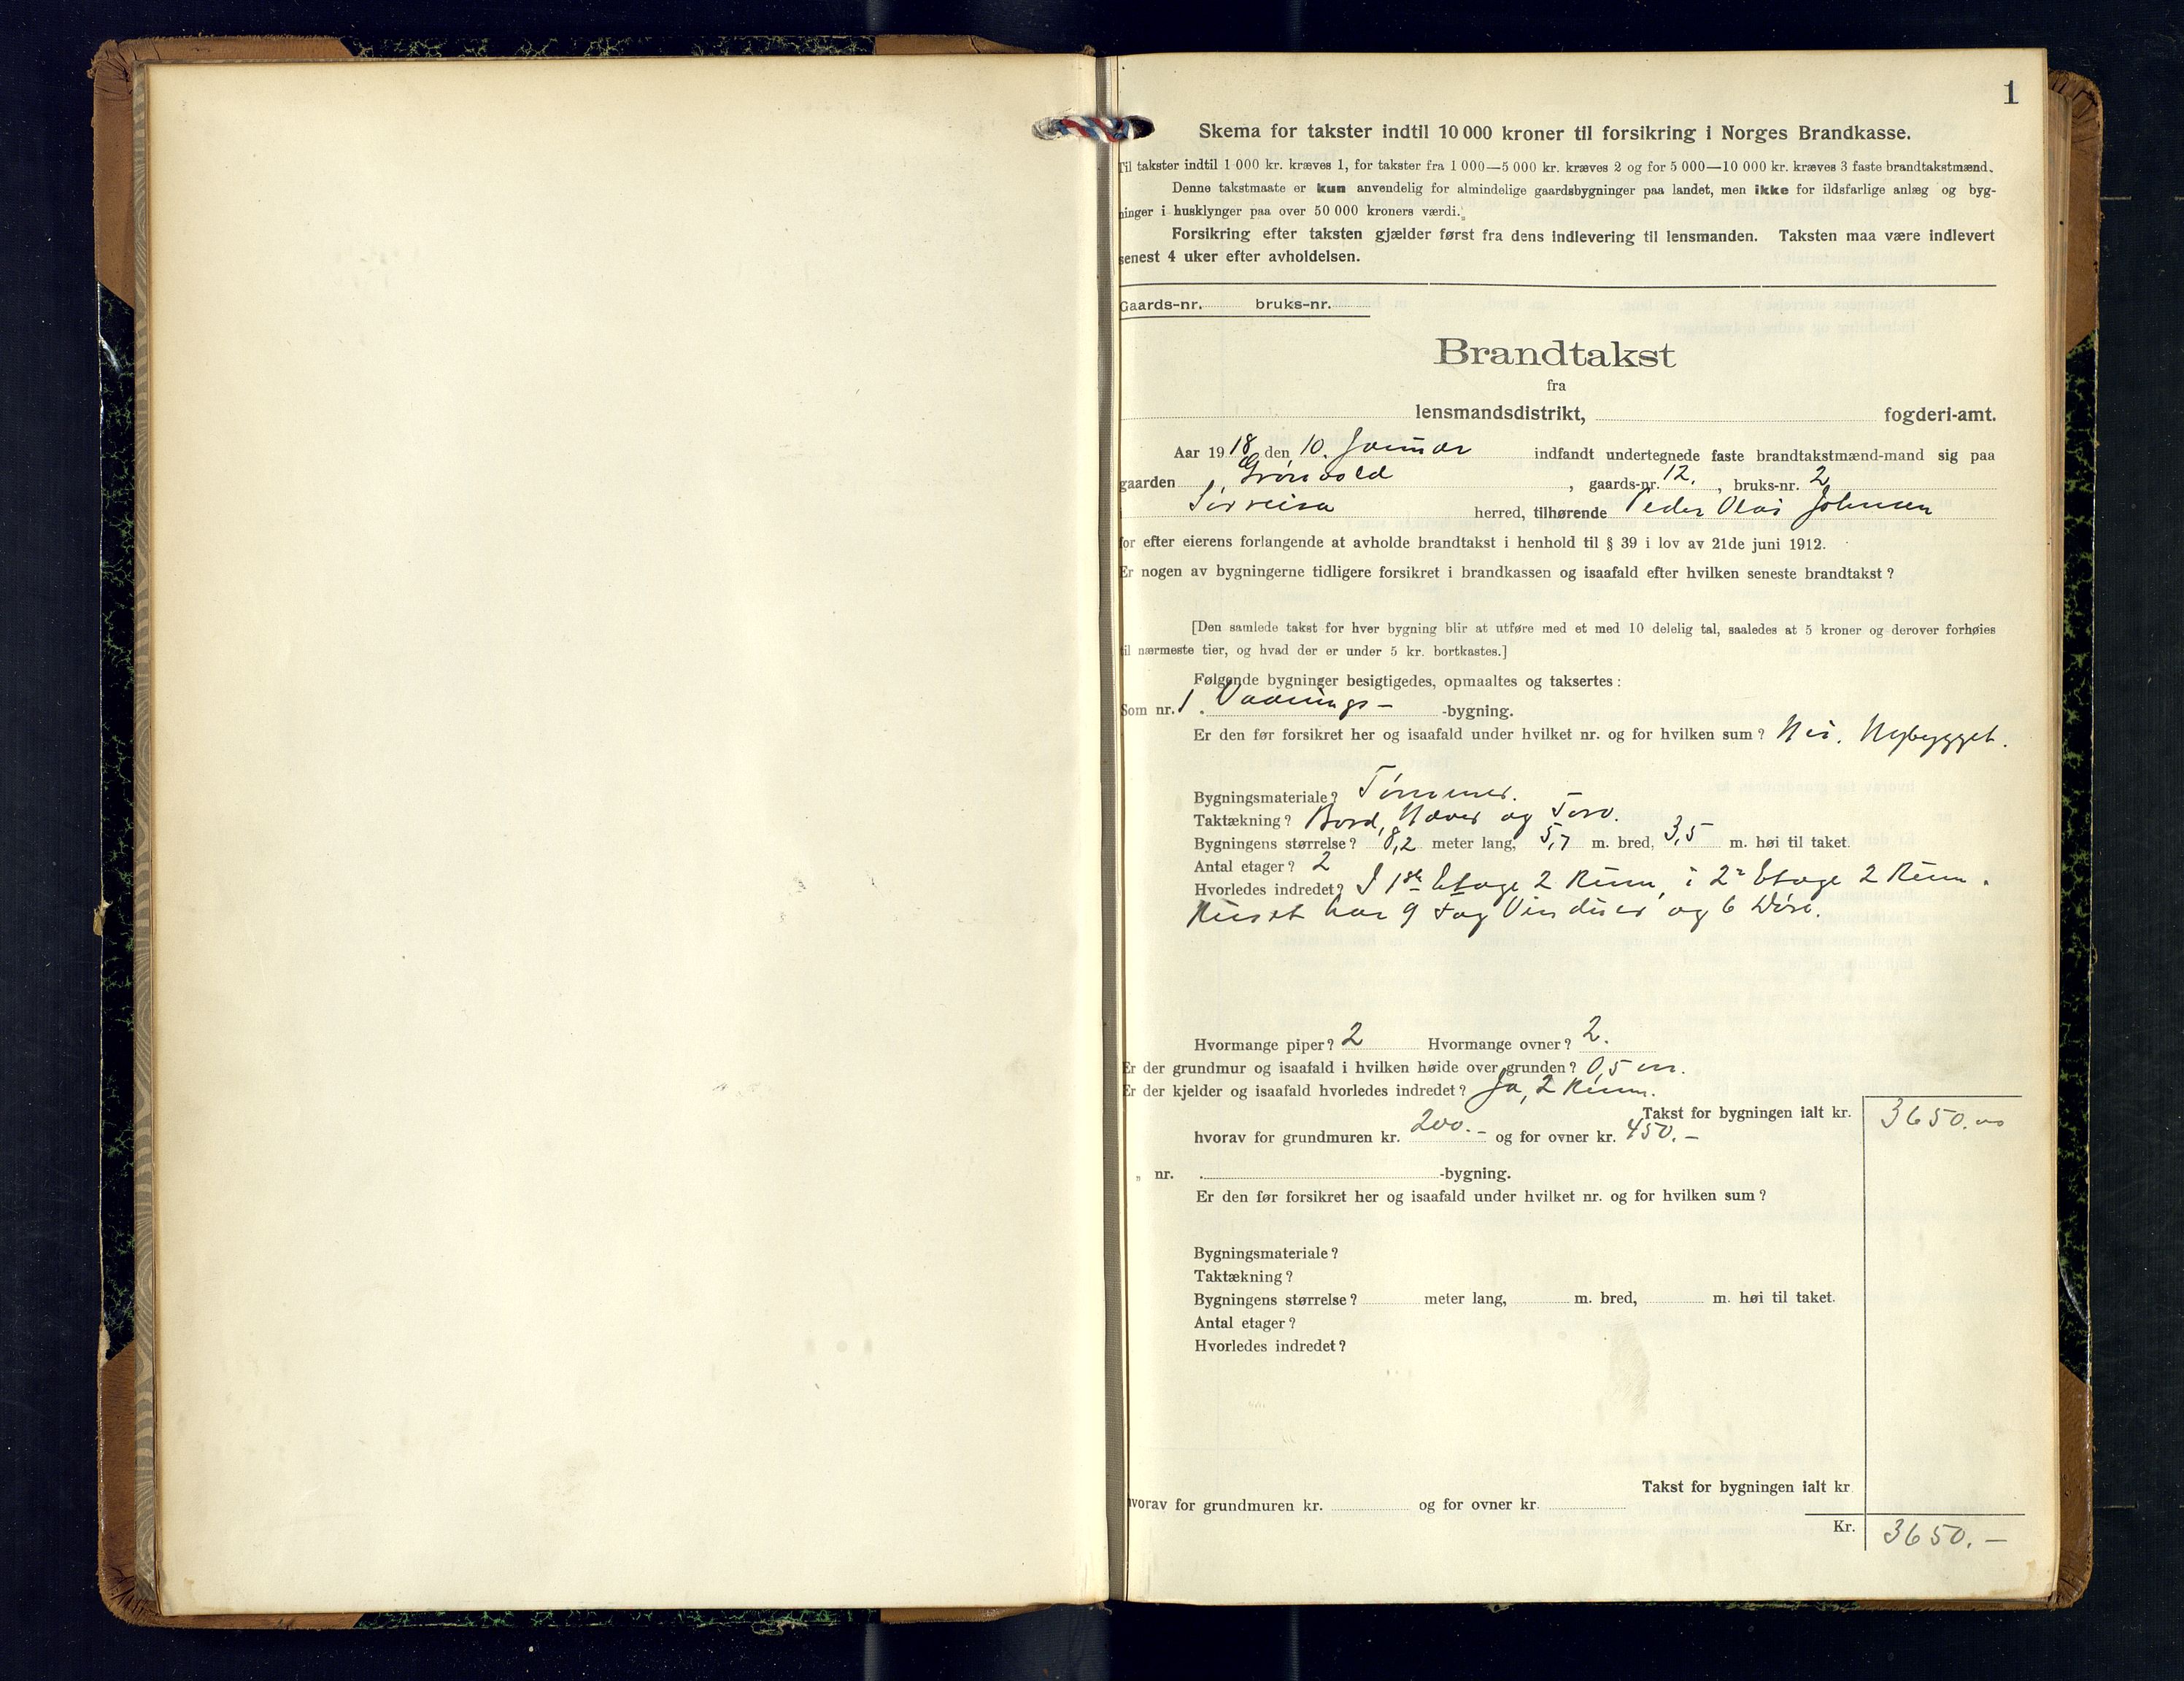 1
Skema for takster indtil 10 000 kroner til forsikring i Norges Brandkasse.
Til takster indtil 1 000 kr. kræves 1, for takster fra 1 000—5 000 kr. kræves 2 og for 5 000—10 000 kr. kræves 3 faste brandtakstmænd.
Denne takstmaate er kun anvendelig for almindelige gaardsbygninger paa landet, men ikke for ildsfarlige anlæg og byg-
ninger i husklynger paa over 50 000 kroners værdi.
Forsikring efter taksten gjælder først fra dens indlevering til lensmanden. Taksten maa være indlevert
senest 4 uker efter avholdelsen.
Gaards-nr. bruks-nr.
Brandtakst
fra
lensmandsdistrikt, fogderi-amt.
Aar 1918 den 10. Januar indfandt undertegnede faste brandtakstmænd-mand sig paa
gaarden Grønvold, gaards-nr. 12., bruks-nr. 2
Sørreisa herred, tilhørende Peder Olai Johnsen
for efter eierens forlangende at avholde brandtakst i henhold til § 39 i lov av 21de juni 1912.
Er nogen av bygningerne tidligere forsikret i brandkassen og isaafald efter hvilken seneste brandtakst?
[Den samlede takst for hver bygning blir at utføre med et med 10 delelig tal, saaledes at 5 kroner og derover forhøies
til nærmeste tier, og hvad der er under 5 kr. bortkastes.]
Følgende bygninger besigtigedes, opmaaltes og taksertes:
Som nr. 1. Vaanings- -bygning.
Er den før forsikret her og isaafald under hvilket nr. og for hvilken sum? Nei. Nybygget.
Bygningsmateriale? Tømmer.
Taktækning? Bord, Næver og Torv.
Bygningens størrelse? 8,2 meter lang, 5,7 m. bred, 3,5 m. høi til taket.
Antal etager? 2
Hvorledes indredet? I 1ste Etage 2 Rum, i 2n Etage 2 Rum.
Huset har 9 Fag Vinduer og 6 Døre.
Hvormange piper? 2 Hvormange ovner? 2.
Er der grundmur og isaafald i hvilken høide over grunden? 0,5 m.
Er der kjelder og isaafald hvorledes indredet? Ja, 2 Rum.
Takst for bygningen ialt kr. 3650.00
hvorav for grundmuren kr. 200.- og for ovner kr. 450.-
„ nr. . -bygning.
Er den før forsikret her og isaafald under hvilket nr. og for hvilken sum?
Bygningsmateriale?
Taktækning?
Bygningens størrelse? meter lang, m. bred, m. høi til taket.
Antal etager?
Hvorledes indredet?
Takst for bygningen ialt kr
hvorav for grundmuren kr. og for ovner kr.
Kr. 3650.-